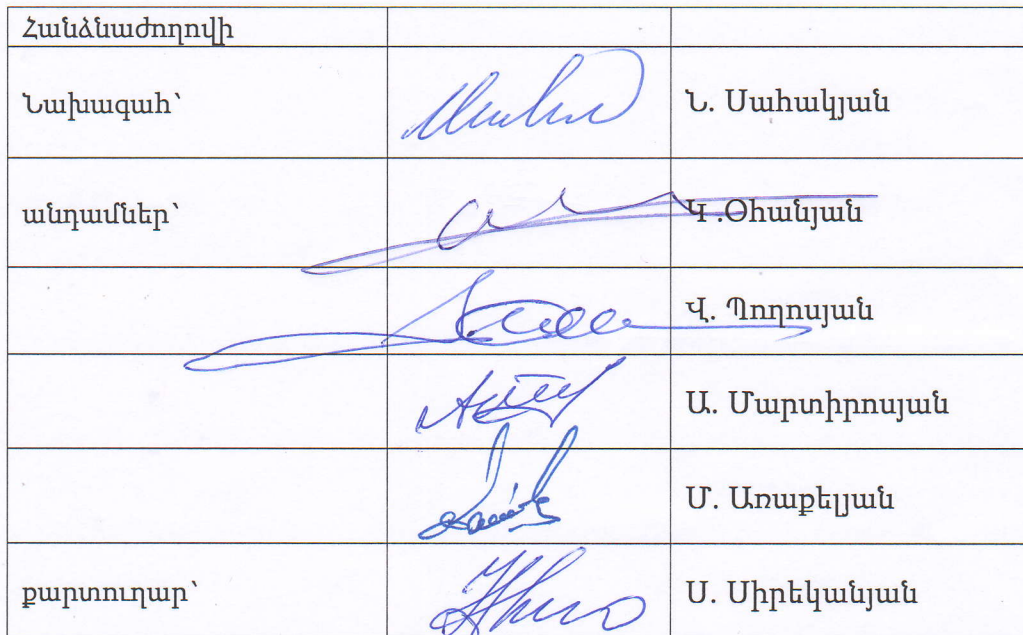 Հանձնաժողովի
Նախագահ՝ Ն. Սահակյան
անդամներ՝ Կ .Օհանյան
Վ. Պողոսյան
Ա. Մարտիրոսյան
Մ. Առաքելյան
քարտուղար՝ Ս. Սիրեկանյան